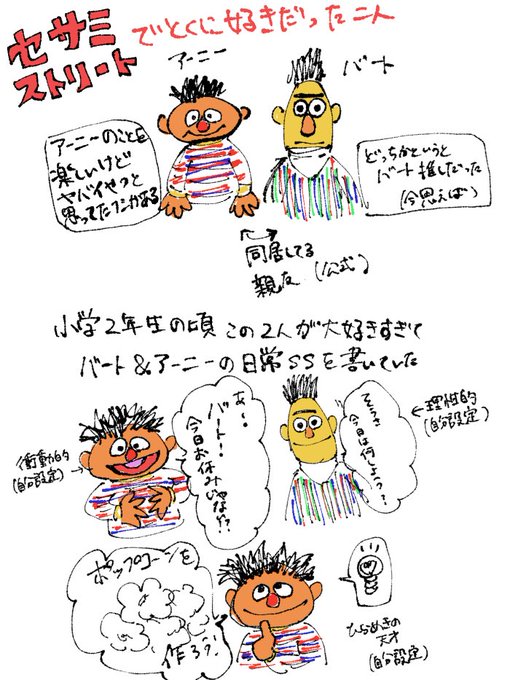 セサミ
ストリート
でとくに好きだった二人
アーニー
バート
アーニーのことを
楽しいけど
ヤバイやつと
思ってたフシがある
どっちかというと
バート推しだった
(今思えば)
同居してる
親友(公式)
小学2年生の頃この2人が大好きすぎて
バート&アーニーの日常SSを書いていた
衝動的
(自分設定)
あ!
バート!
今日お休みじゃない!?
そうさ
今日は何しよっか?
←理性的
(自分設定)
ポップコーンを
作ろう!
ひらめきの
天才
(自分設定)